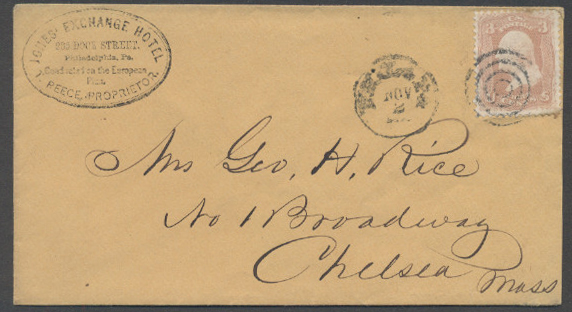 JONES' EXCHANGE HOTEL
235 DOCK STREET.
Philadelphia, Pa.
Conducted on the European
Plan.
T. REECE, PROPRIETOR.
NOV
2
3 3
Mrs Geo. H. Rice
No 1 Broadway
Chelsea Mass